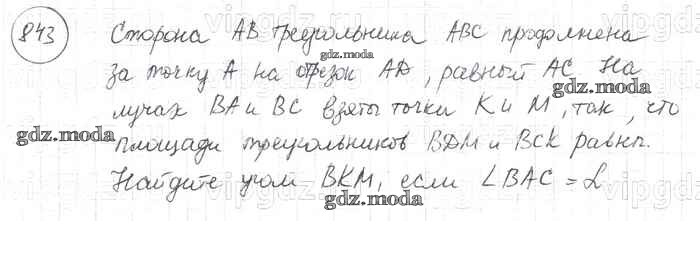 843 Сторона AB треугольника ABC продолжена
за точку A на отрезок AD, равный AC. На
лучах BA и BC взяты точки K и M, так, что
площади треугольников BDM и BCK равны.
Найдите угол BKM, если ∠BAC = α
gdz.moda
gdz.moda
gdz.moda
gdz.moda
gdz.moda